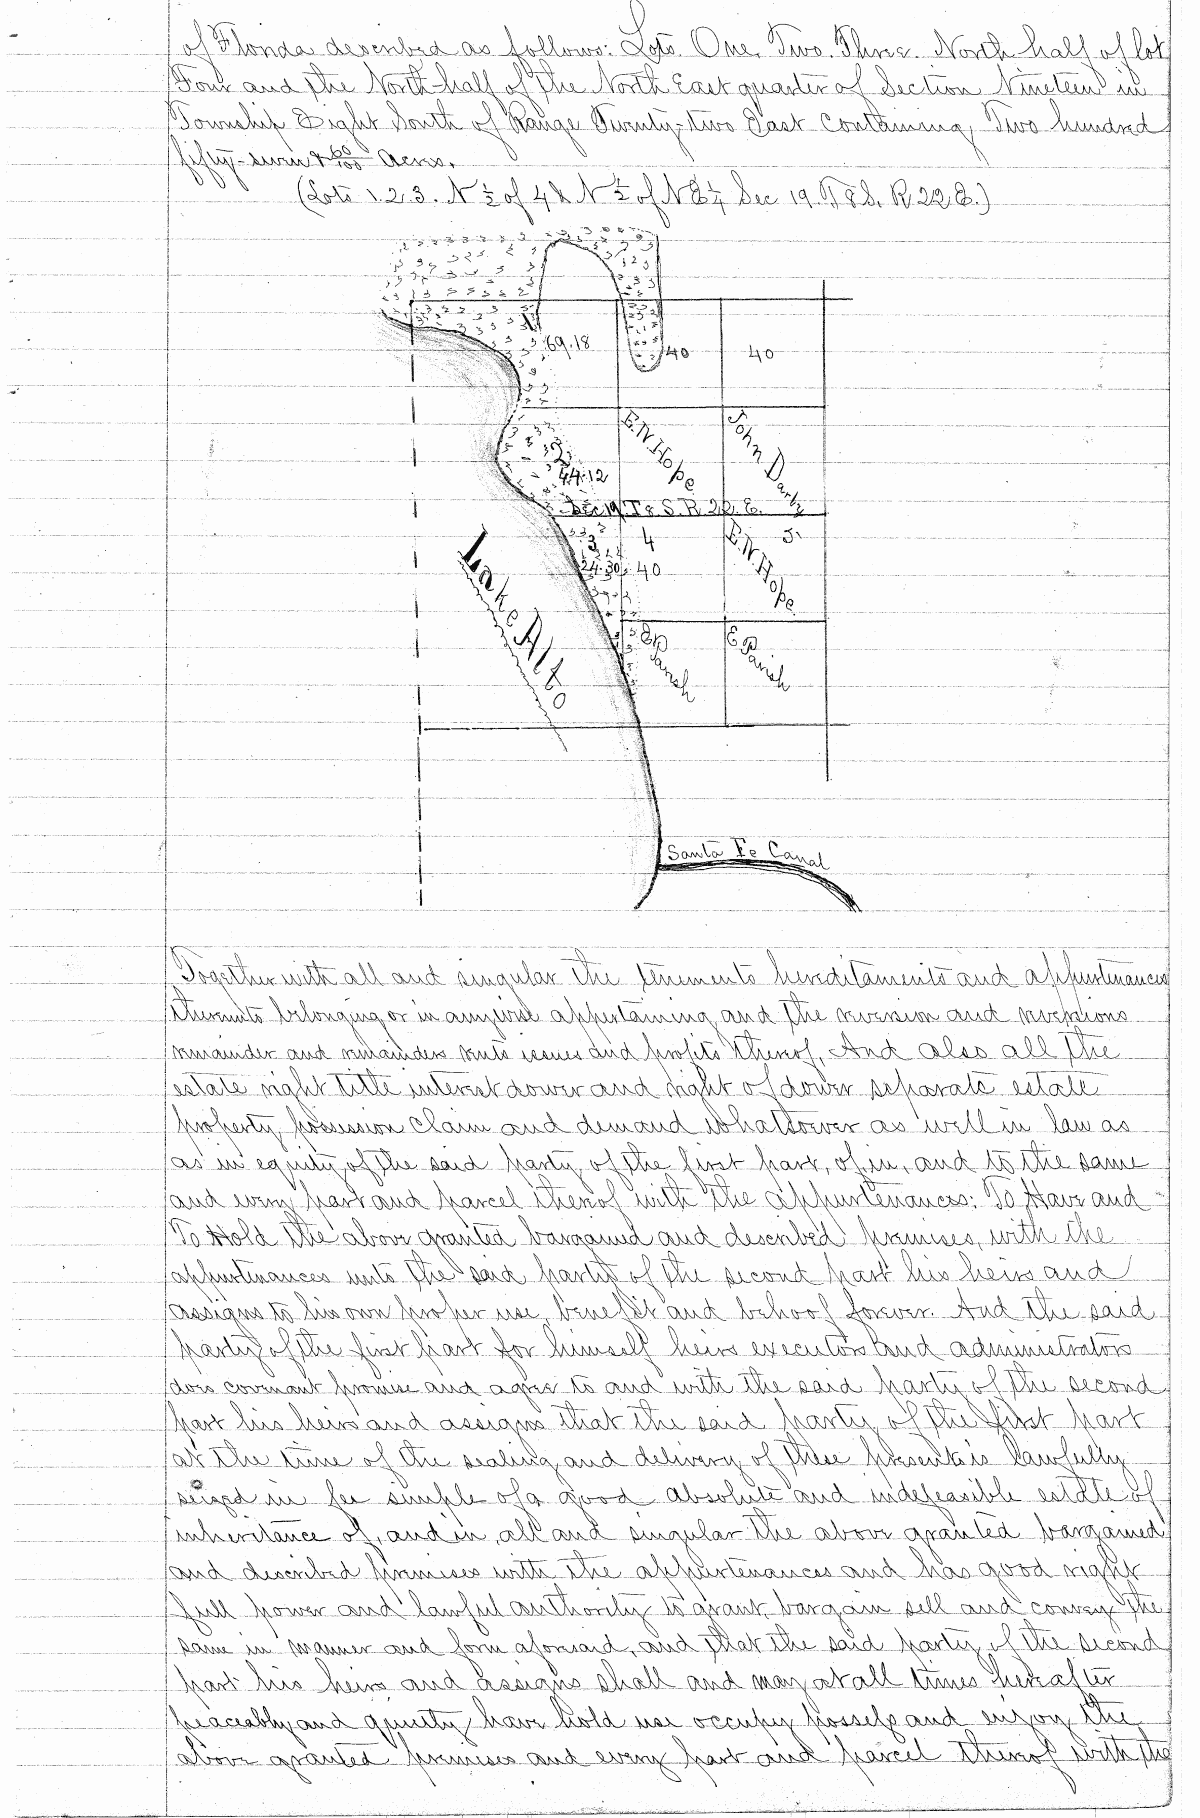 of Florida described as follows: Lots One, Two, Three. North half of lot
Four and the North half of the North East quarter of Section Nineteen in
Township Eight South of Range Twenty-two East containing Two hundred
fifty-seven & 60/100 Acres.
(Lots 1.2.3. N ½ of 4 & N ½ of NE ¼ Sec 19. T 8 S. R 22 E.)
1
69.18
40
40
E.N. Hope
John Darby
2
44.12
Sec 19 T 8 S. R 22. E.
3
24.30
4
40
E.N. Hope
5
E Parish
E Parish
Lake Alto
Santa Fe Canal
Together with all and singular the tenements hereditaments and appurtenances
thereunto belonging or in anywise appertaining and the reversion and reversions
remainder and remainders rents issues and profits thereof, And also all the
estate right title interest dower and right of dower separate estate
property, possession claim and demand whatsoever as well in law as
as in equity of the said party of the first part, of, in, and to the same
and every part and parcel thereof with the appurtenances: To Have and
To Hold the above granted bargained and described premises, with the
appurtenances unto the said party of the second part his heirs and
assigns to his own proper use, benefit and behoof forever. And the said
party of the first part for himself heirs executors and administrators
does covenant promise and agree to and with the said party of the second
part his heirs and assigns that the said party of the first part
at the time of the sealing and delivery of these presents is lawfully
seized in fee simple of a good absolute and indefeasible estate of
inheritance of, and in, all and singular the above granted bargained
and described premises with the appurtenances and has good right
full power and lawful authority to grant, bargain sell and convey the
same in manner and form aforesaid, and that the said party of the second
part his heirs and assigns shall and may at all times hereafter
peaceably and quietly have hold use occupy possess and enjoy the
above granted premises and every part and parcel thereof with the